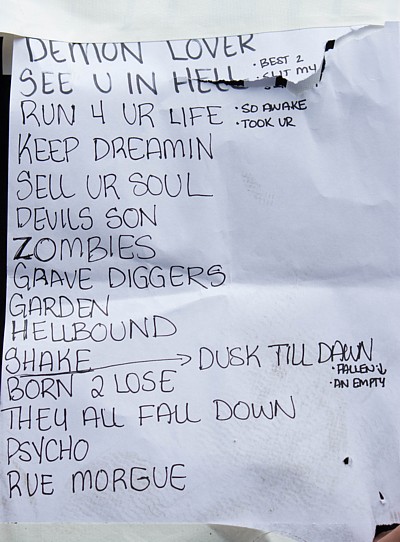 DEMON LOVER
· BEST 2
SEE U IN HELL
· SLIT MY
RUN 4 UR LIFE
· SO AWAKE
· TOOK UR
KEEP DREAMIN
SELL UR SOUL
DEVILS SON
ZOMBIES
GRAVE DIGGERS
GARDEN
HELLBOUND
SHAKE → DUSK TILL DAWN
· FALLEN ↓
· AN EMPTY
BORN 2 LOSE
THEY ALL FALL DOWN
PSYCHO
RUE MORGUE